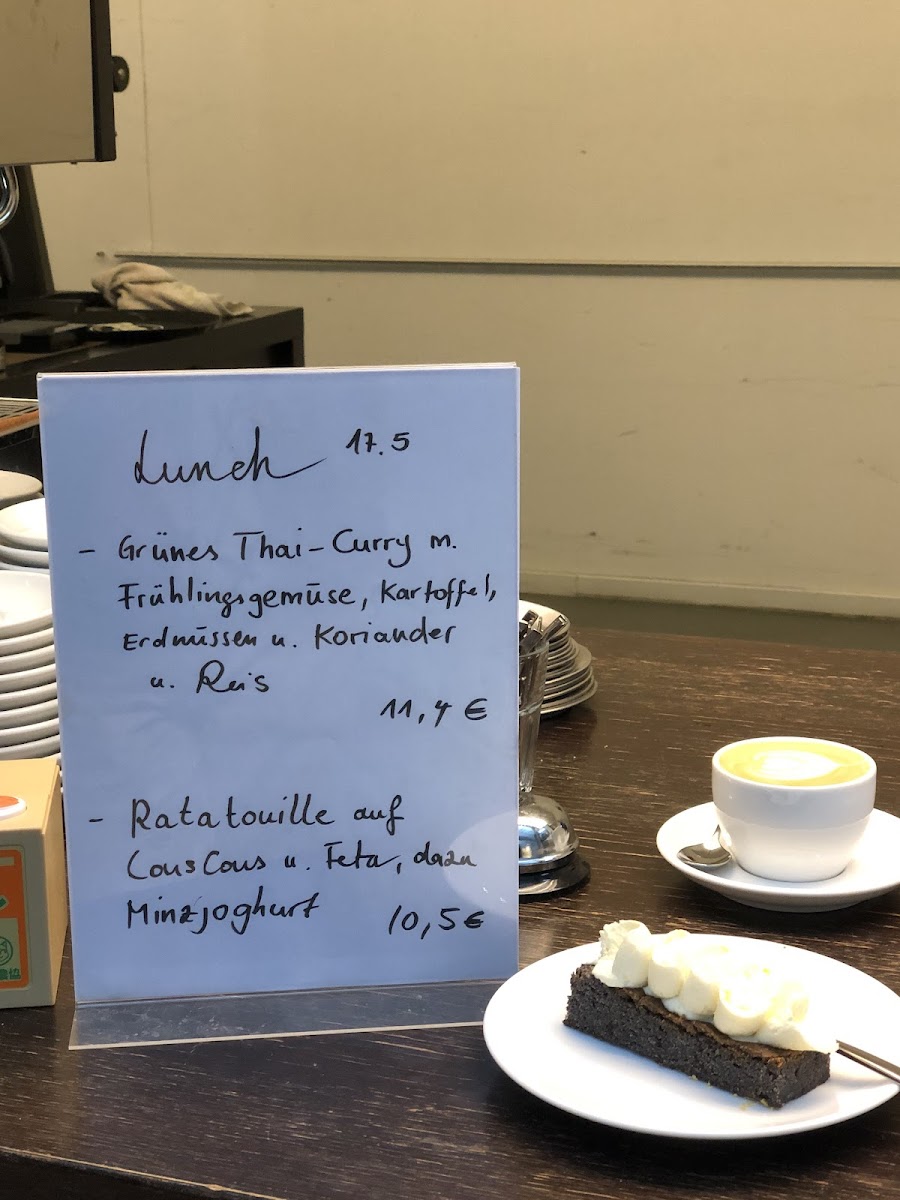 Lunch 17.5
- Grünes Thai-Curry m.
Frühlingsgemüse, Kartoffel,
Erdnüssen u. Koriander
u. Reis
11,4 €
- Ratatouille auf
CousCous u. Feta, dazu
Minzjoghurt 10,5 €